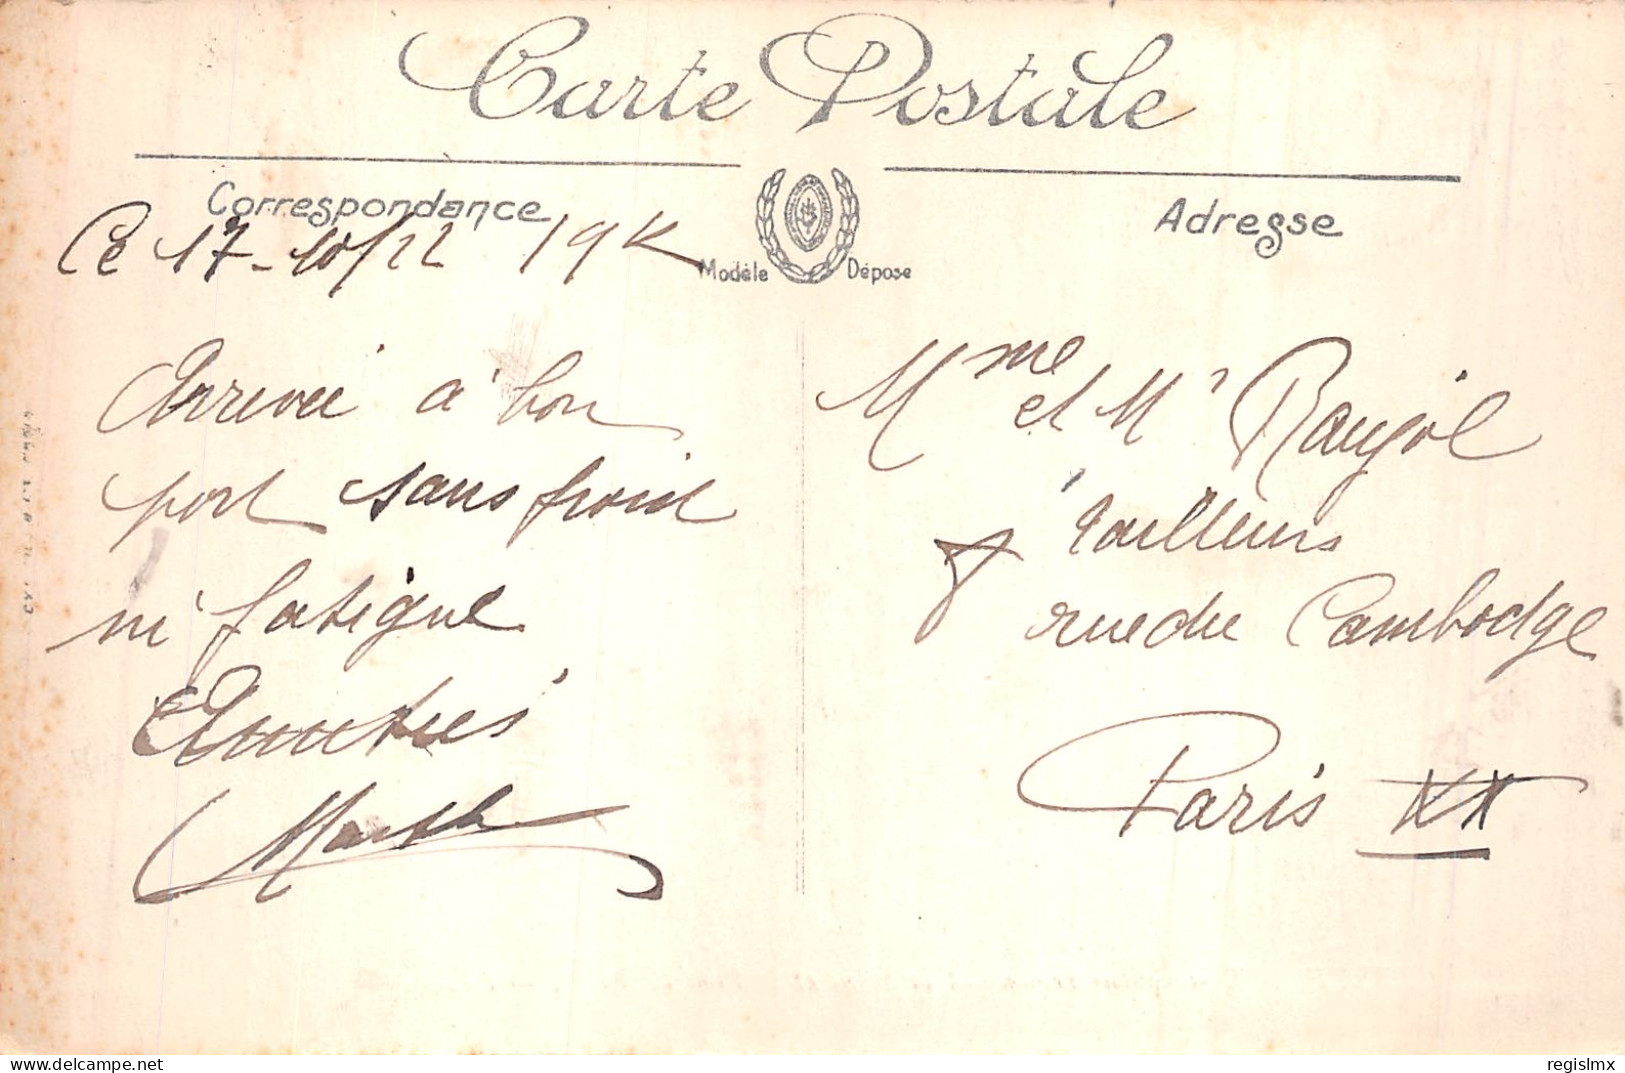 Carte Postale
Correspondance
Adresse
Modèle Déposé
Ce 17-10/22 19h
Arrivée à bon
port sans froid
ni fatigue
Amitiés
Mme et Mr
tailleurs
rue du Cambodge
Paris XX
regislmx